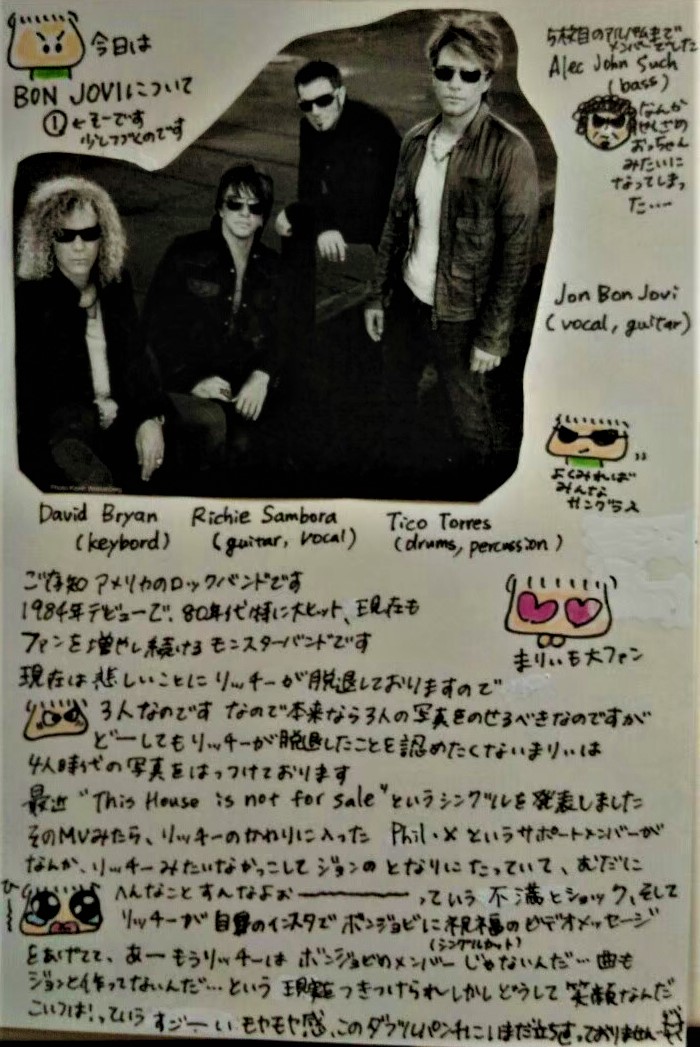 今日は
BON JOVIについて
①
少しつづくのです
5枚目のアルバムまで
メンバーでした
Alec John Such
(bass)
なんか
おっちゃん
みたいに
なってしまっ
た…
Jon Bon Jovi
(vocal, guitar)
よくみれば
みんな
サングラス
David Bryan
(keybord)
Richie Sambora
(guitar, vocal)
Tico Torres
(drums, percussion)
ご存知 アメリカのロックバンドです
1984年デビューで、80年代特に大ヒット、現在も
ファンを増やし続けるモンスターバンドです
まりいも大ファン
現在は悲しいことにリッチーが脱退しておりますので
3人なのです なので本来なら3人の写真をのせるべきなのですが
どーしてもリッチーが脱退したことを認めたくないまりいは
4人時代の写真をはっつけております
最近 "This House is not for sale" というシングルを発表しました
そのMVみたら、リッチーのかわりに入った Phil・X というサポートメンバーが
なんか、リッチーみたいなかっこしてジョンのとなりにたっていて、
へんなことすんなよぉ――――っていう不満とショック、そして
リッチーが自身のインスタでボンジョビに祝福のビデオメッセージ
(シングルカット)
をあげてて、あーもうリッチーはボンジョビのメンバーじゃないんだ…曲も
ジョンと作ってないんだ…という現実つきつけられしかしどうして笑顔なんだ
こいつは!っていうすごーいモヤモヤ感、このダブルパンチにいまだ立ち直っておりません